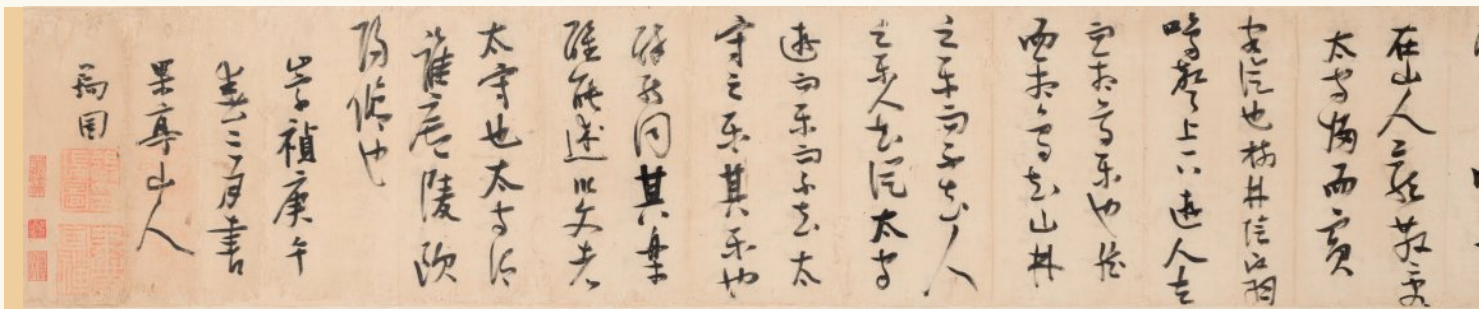 在山人影散亂
太守歸而賓
客從也樹林陰翳
鳴聲上下遊人去
而禽鳥樂也然
而禽鳥知山林
之樂而不知人
之樂人知從太守
遊而樂而不知太
守之樂其樂也
醉能同其樂
醒能述以文者
太守也太守謂
誰廬陵歐
陽脩也
崇禎庚午
春二月書
果亭山人
瑞圖